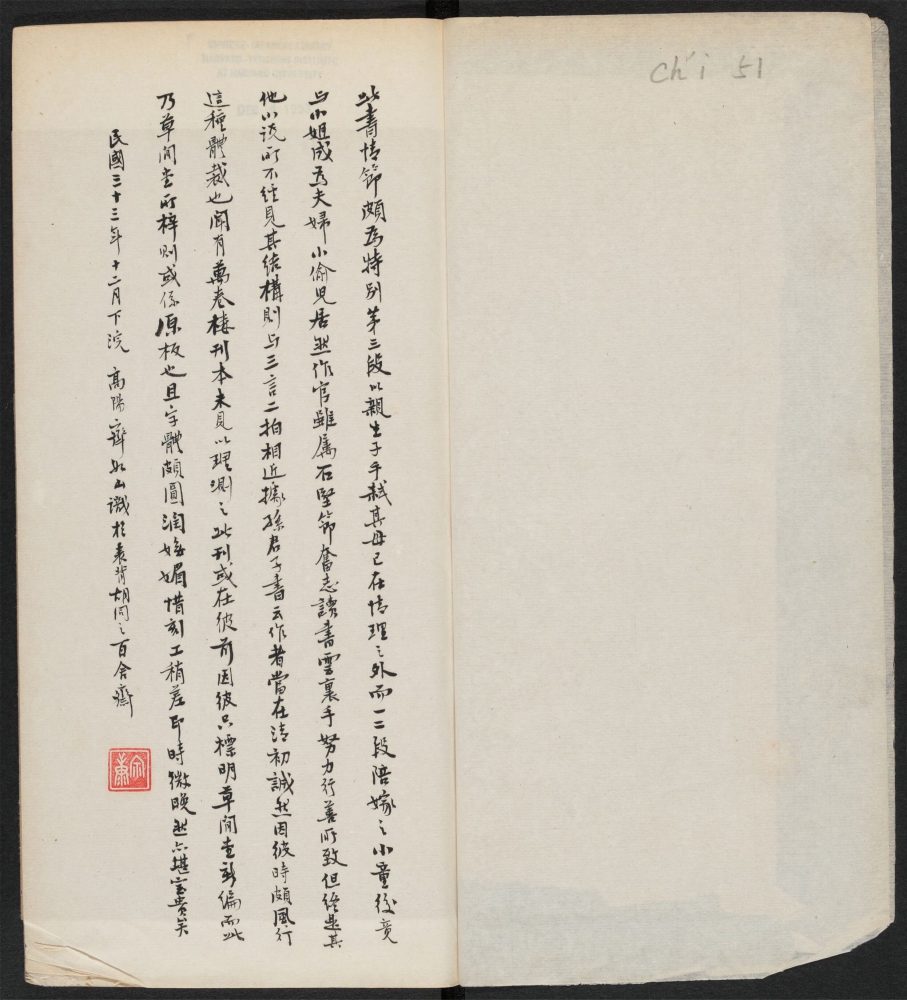 此書情節頗為特別第三段以親生子手弒其母已在情理之外而一二段陪嫁之小童後竟
与小姐成為夫婦小偷兒居然作官雖屬石堅節奮志讀書雲裏手努力行善所致但終是其
他小說所不經見其結構則与三言二拍相近據孫君子書云作者當在清初誠然因彼時頗風行
這種體裁也聞有萬卷樓刊本未見以理測之此刊或在彼前因彼只標明草閒堂新編而此
乃草閒堂所梓則或係原板也且字體頗圓潤娬媚惜刻工稍差即時微晚然亦堪寶貴矣
民國三十三年十二月下浣 高陽齊如山識於表背胡同之百舍齋
Ch'i 51